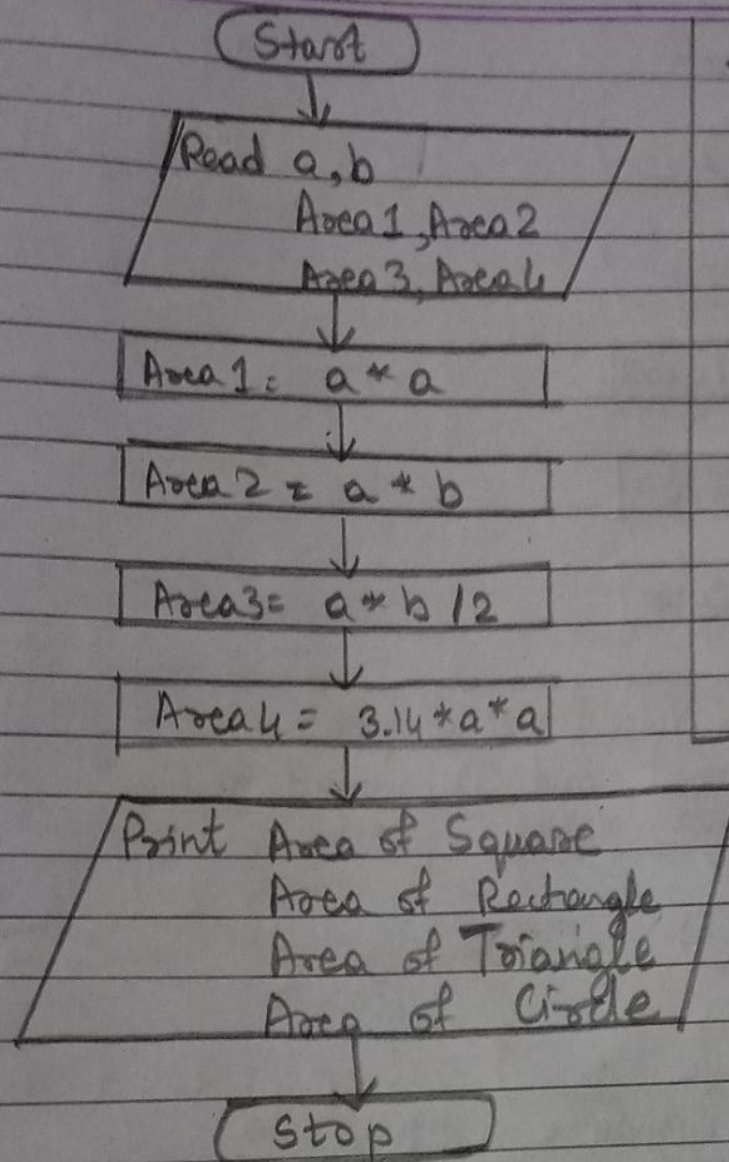 Start
Read a,b
Area1,Area2
Area3,Area4
Area1= a * a
Area2 = a * b
Area3= a * b /2
Area4 = 3.14*a*a
Print Area of Square
Area of Rectangle
Area of Triangle
Area of Circle
Stop